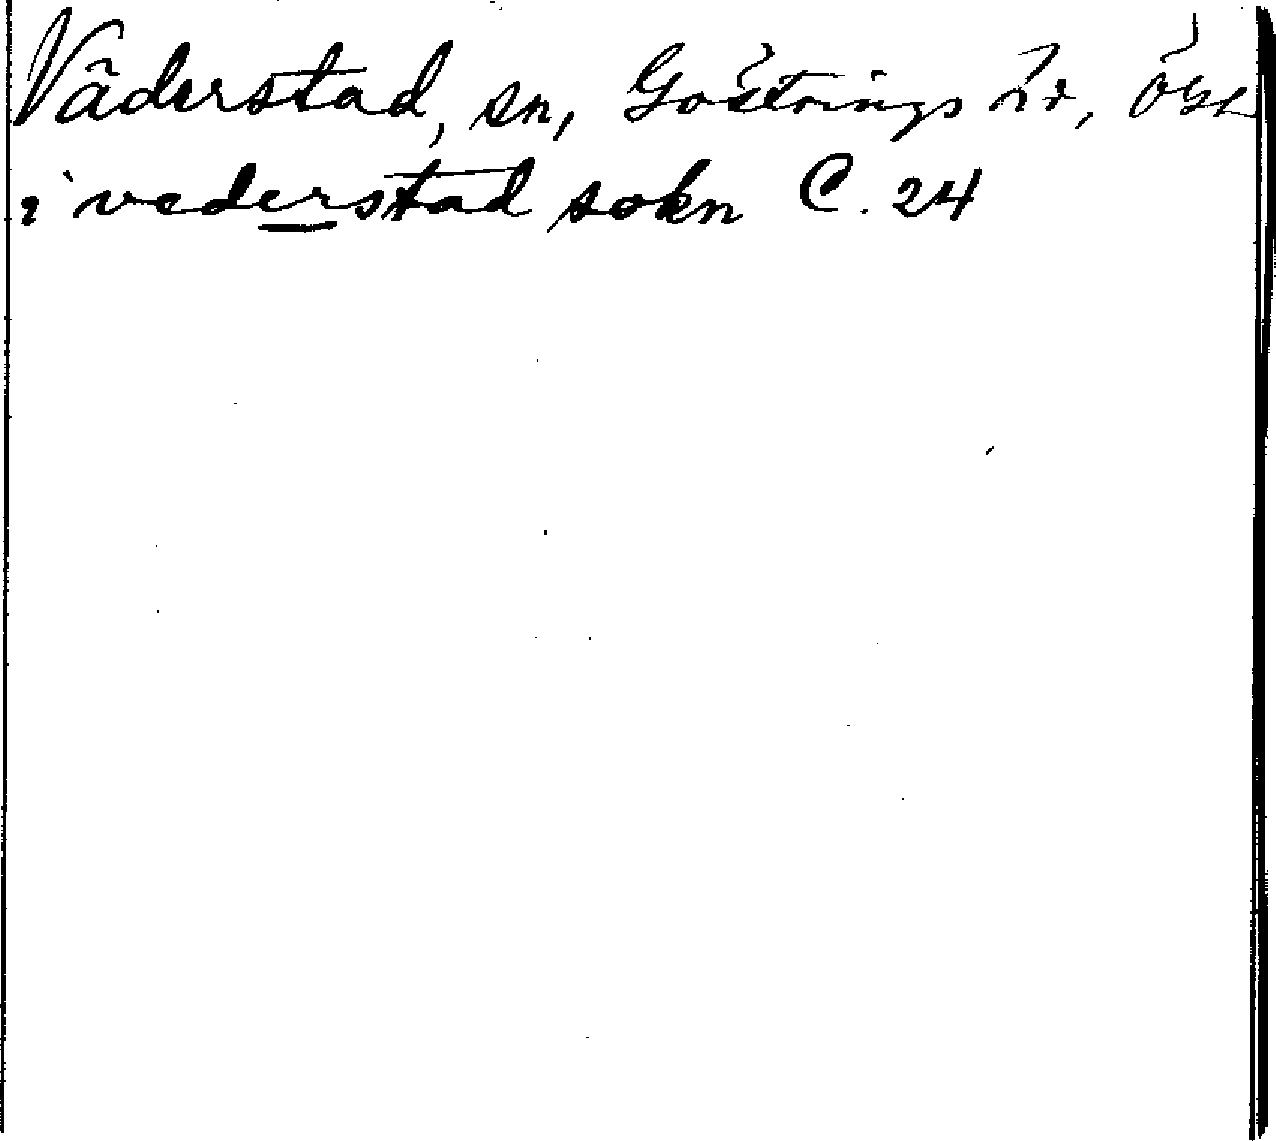 Väderstad, sn, Göstrings hd, Ögl
i vederstad sokn C. 24